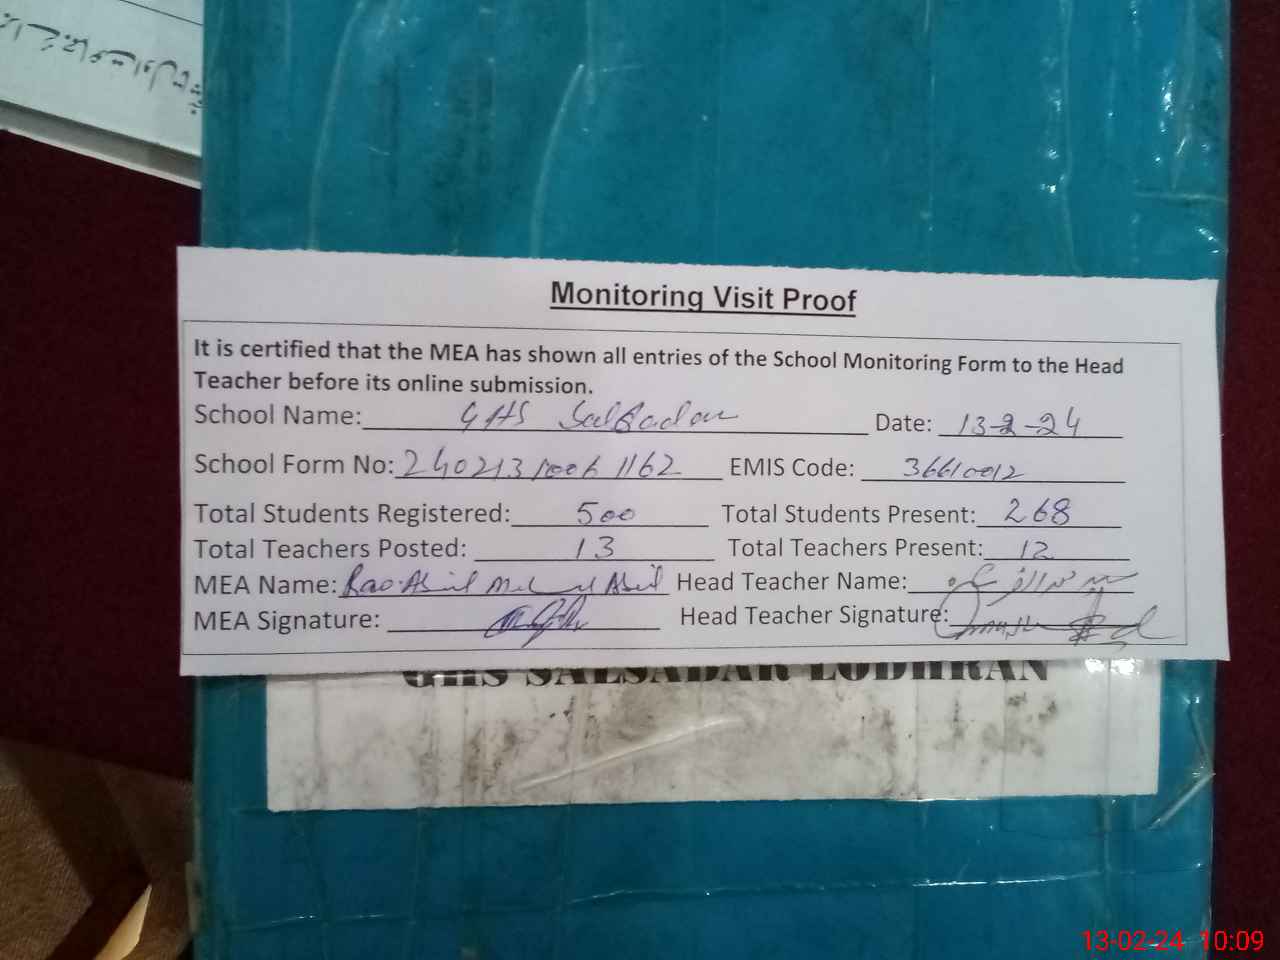 Monitoring Visit Proof
It is certified that the MEA has shown all entries of the School Monitoring Form to the Head
Teacher before its online submission.
School Name: GHS Salsadar Date: 13-2-24
School Form No: 24021310061162 EMIS Code: 36610012
Total Students Registered: 500 Total Students Present: 268
Total Teachers Posted: 13 Total Teachers Present: 12
MEA Name: Rao Head Teacher Name:
MEA Signature: Head Teacher Signature:
GHS SALSADAR LODHRAN
13-02-24 10:09